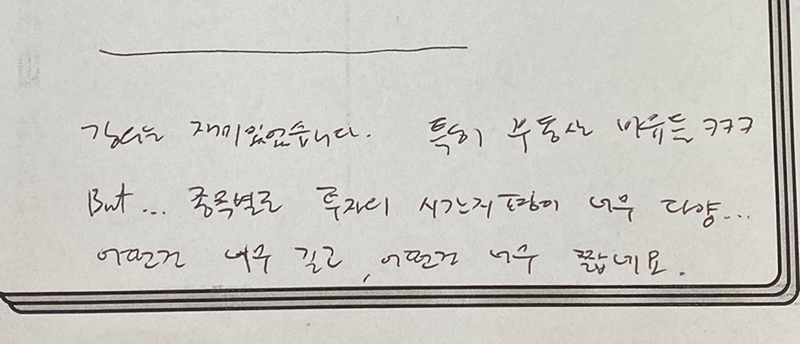 강의는 재미있었습니다. 특히 부동산 비유들 ㅋㅋㅋ
But... 종목별로 투자의 시간지평이 너무 다양...
어떤건 너무 길고, 어떤건 너무 짧네요.